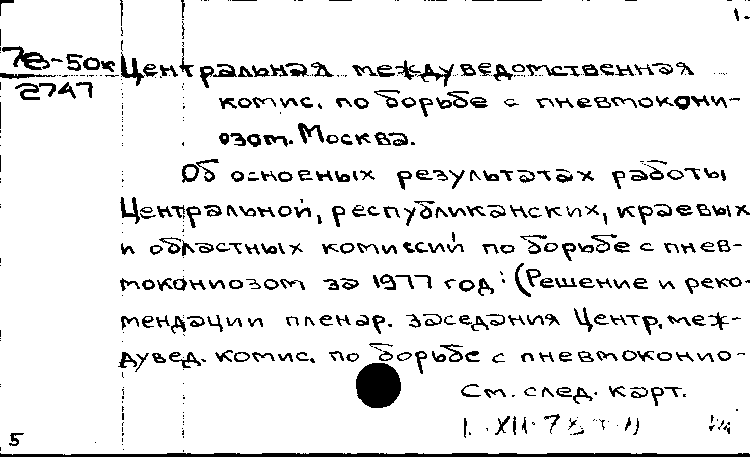 1.
78-50к Центральная междуведомственная
2747
комис. по борьбе с пневмокони-
озом. Москва.
Об основных результатах работы
Центральной, республиканских, краевых
и областных комиссий по борьбе с пнев-
мокониозом за 1977 год: (Решение и реко-
мендации пленар. заседания Центр. меж-
дувед. комис. по борьбе с пневмоконио-
См. след. карт.
5